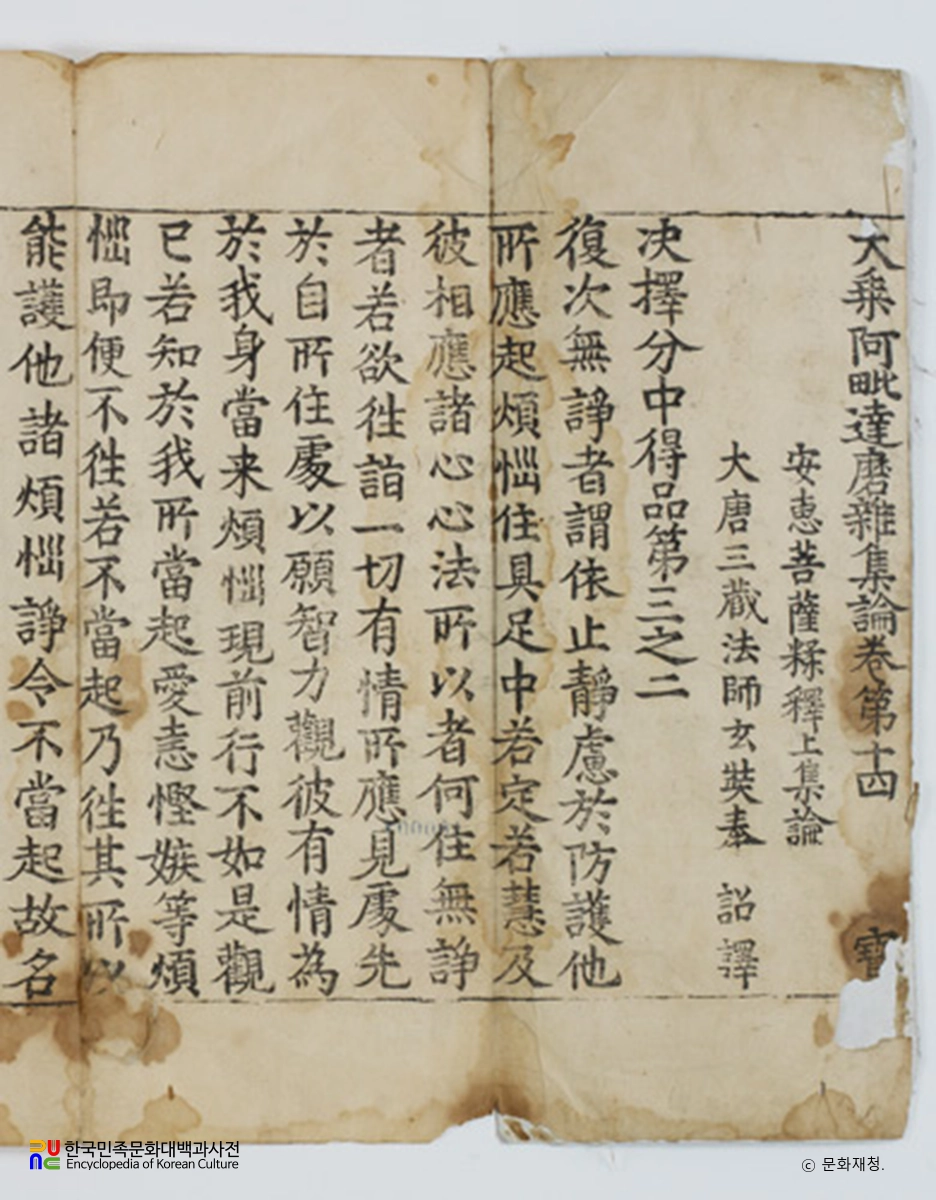 大乗阿毗達磨雜集論卷第十四 寳
安恵菩薩糅釋上集論
大唐三藏法師玄奘奉 詔譯
决擇分中得品第三之二
復次無諍者謂依止靜慮於防護他
所應起煩惱住具足中若定若慧及
彼相應諸心心法所以者何住無諍
者若欲徃詣一切有情所應見處先
於自所住處以願智力觀彼有情為
於我身當来煩惱現前行不如是觀
已若知於我所當起愛恚慳嫉等煩
惱即便不徃若不當起乃徃其所以
能護他諸煩惱諍令不當起故名
한국민족문화대백과사전
Encyclopedia of Korean Culture
ⓒ 문화재청.